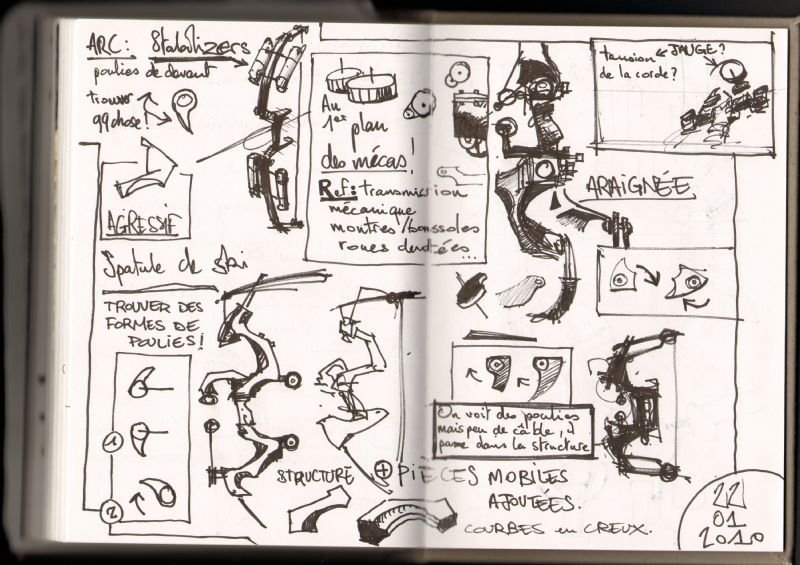 ARC: Stabilizers
poulies de devant
trouver
qqchose!
AGRESSIF
Spatule de ski
TROUVER DES
FORMES DE
POULIES!
1
2
Au
1er plan
des mécas!
Ref: transmission
mécanique
montres/boussoles
roues dentées...
STRUCTURE + PIÈCES MOBILES
AJOUTÉES.
COURBES en CREUX.
tension ← JAUGE?
de la corde?
ARAIGNÉE
On voit des poulies
mais peu de câble, il
passe dans la structure
22
01
2010